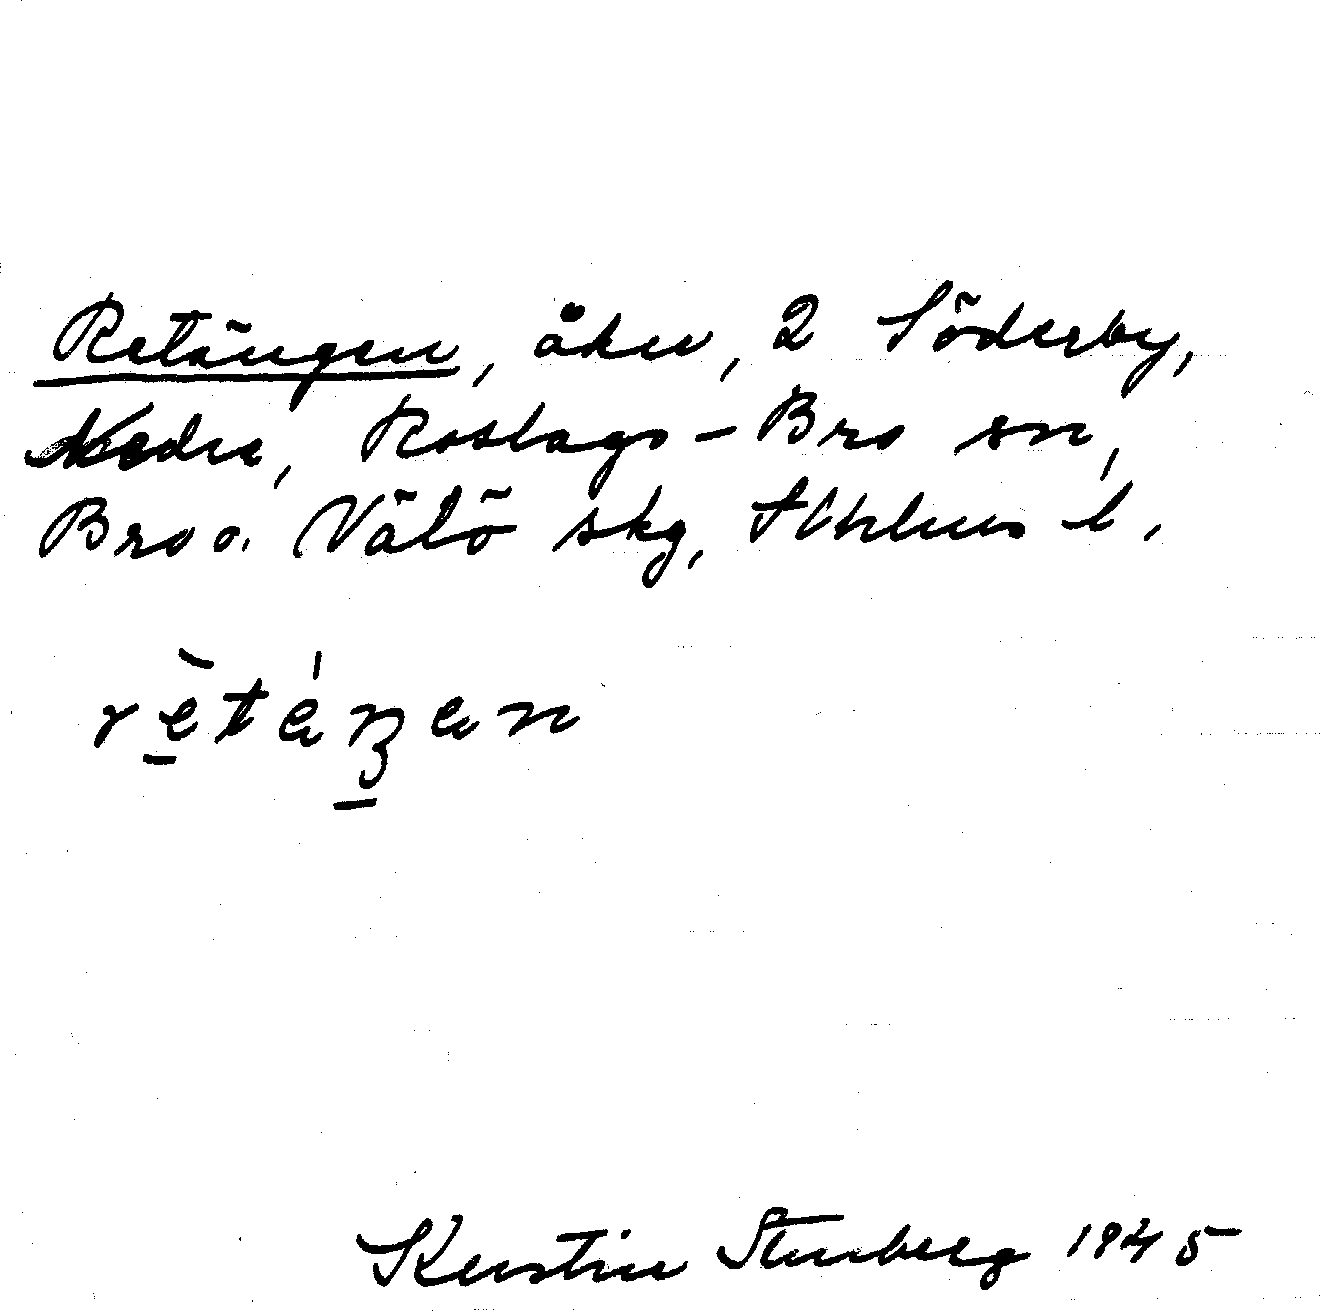 Retängen, åker, 2 Söderby,
Nedre, Roslags-Bro sn,
Bro o. Vätö skg, Sthlms l.
Kerstin Stenberg 1945